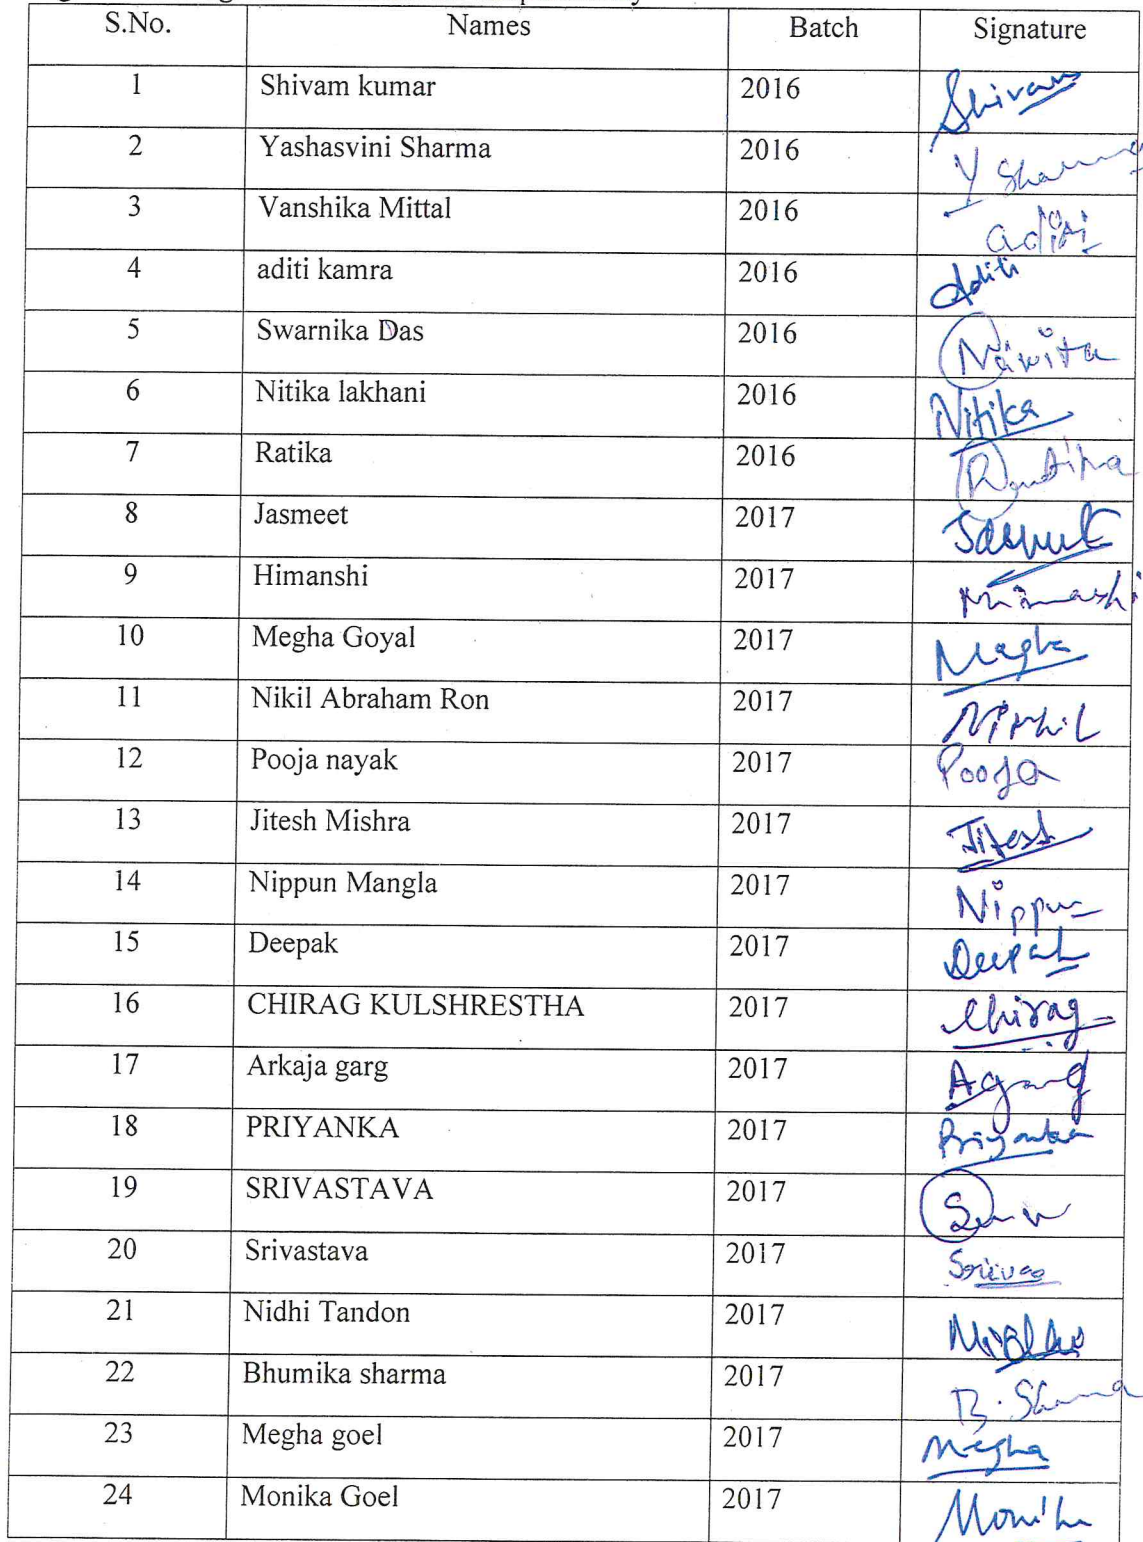 S.No. Names Batch Signature
1 Shivam kumar 2016 Shivam
2 Yashasvini Sharma 2016 Y Sharma
3 Vanshika Mittal 2016 aditi
4 aditi kamra 2016 Aditi
5 Swarnika Das 2016
6 Nitika lakhani 2016 Nitika
7 Ratika 2016
8 Jasmeet 2017
9 Himanshi 2017
10 Megha Goyal 2017 Megha
11 Nikil Abraham Ron 2017
12 Pooja nayak 2017 Pooja
13 Jitesh Mishra 2017 Jitesh
14 Nippun Mangla 2017 Nippun
15 Deepak 2017 Deepak
16 CHIRAG KULSHRESTHA 2017 Chirag
17 Arkaja garg 2017 Agarg
18 PRIYANKA 2017 Priyanka
19 SRIVASTAVA 2017
20 Srivastava 2017
21 Nidhi Tandon 2017
22 Bhumika sharma 2017 B. Sharma
23 Megha goel 2017 Megha
24 Monika Goel 2017 Monika